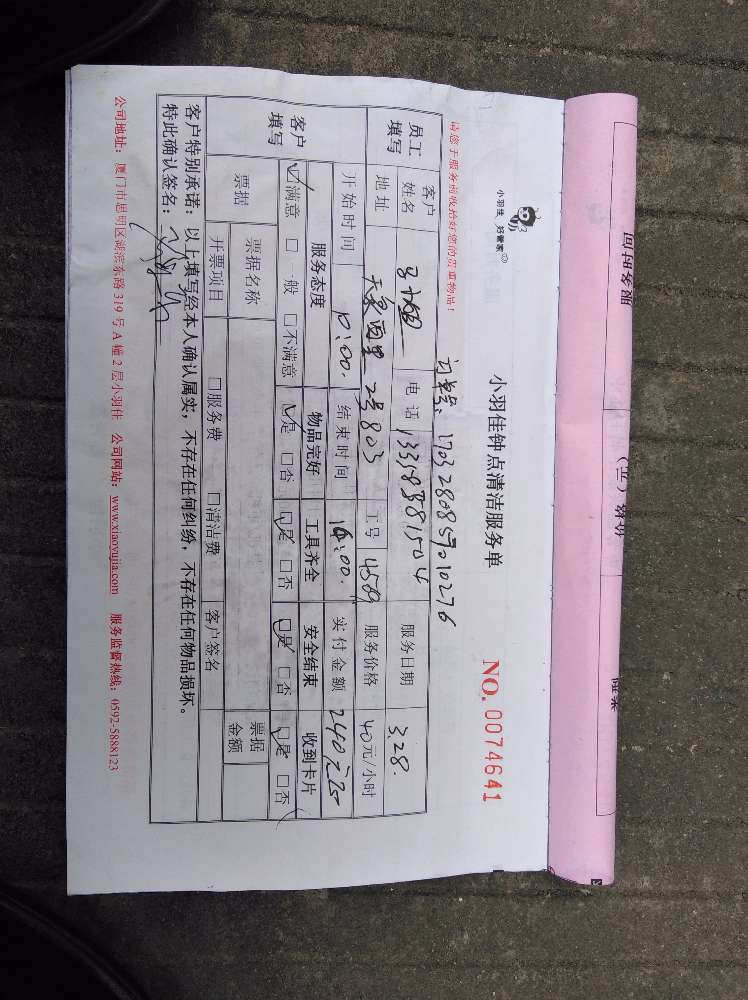 小羽佳 好管家
小羽佳钟点清洁服务单
NO. 0074641
请您于服务前收拾好您的贵重物品!
订单号: 1703280857010276
员工填写
客户姓名
电话
服务日期 3.28.
地址
2号803
工号 4589
服务价格 40元/小时
开始时间 10:00.
结束时间 16:00.
实付金额 240元
客户填写
服务态度 物品完好 工具齐全 安全结束 收到卡片
满意 □一般 □不满意 是 □否 是 □否 是 □否 是 □否
票据 票据名称 票据金额
开票项目 □服务费 □清洁费 客户签名
客户特别承诺:以上填写经本人确认属实,不存在任何纠纷,不存在任何物品损坏。
特此确认签名:
公司地址:厦门市思明区湖滨东路 319 号 A 幢 2 层小羽佳 公司网站:www.xiaoyujia.com 服务监督热线:0592-5888123